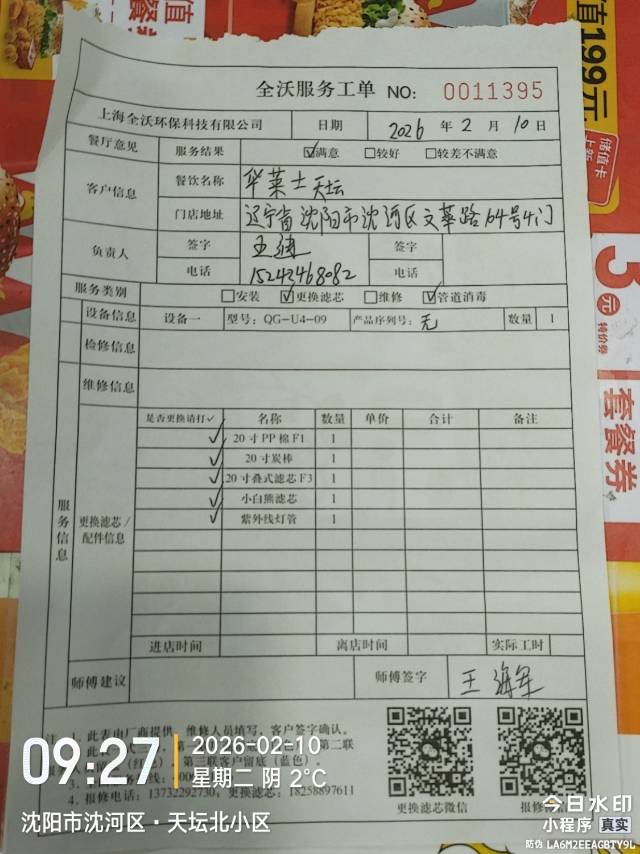 全沃服务工单 NO: 0011395
上海全沃环保科技有限公司 日期 2026 年 2 月 10 日
餐厅意见 服务结果 ☑满意 ☐较好 ☐较差不满意
客户信息 餐饮名称 华莱士天坛
门店地址 辽宁省沈阳市沈河区文萃路64号4门
负责人 签字 签字
电话 15243468082 电话
服务类别 ☐安装 ☑更换滤芯 ☐维修 ☑管道消毒
设备信息 设备一 型号: QG-U4-09 产品序列号: 无 数量 1
检修信息
维修信息
服务信息
更换滤芯/配件信息
是否更换请打✓ 名称 数量 单价 合计 备注
✓ 20寸PP棉F1 1
✓ 20寸炭棒 1
✓ 20寸叠式滤芯F3 1
✓ 小白熊滤芯 1
✓ 紫外线灯管 1
进店时间 离店时间 实际工时
师傅建议 师傅签字 王海军
1、此表由厂商提供，维修人员填写，客户签字确认。
第二联
第三联客户留底（蓝色）。
4、报修电话: 13732292730, 更换滤芯: 18258897611
更换滤芯微信 报修
09:27
2026-02-10
星期二 阴 2℃
沈阳市沈河区·天坛北小区
今日水印
小程序 真实
防伪 LA6M2EEACBTY9L
值199元
储值卡
3元
特价券
套餐券
储值